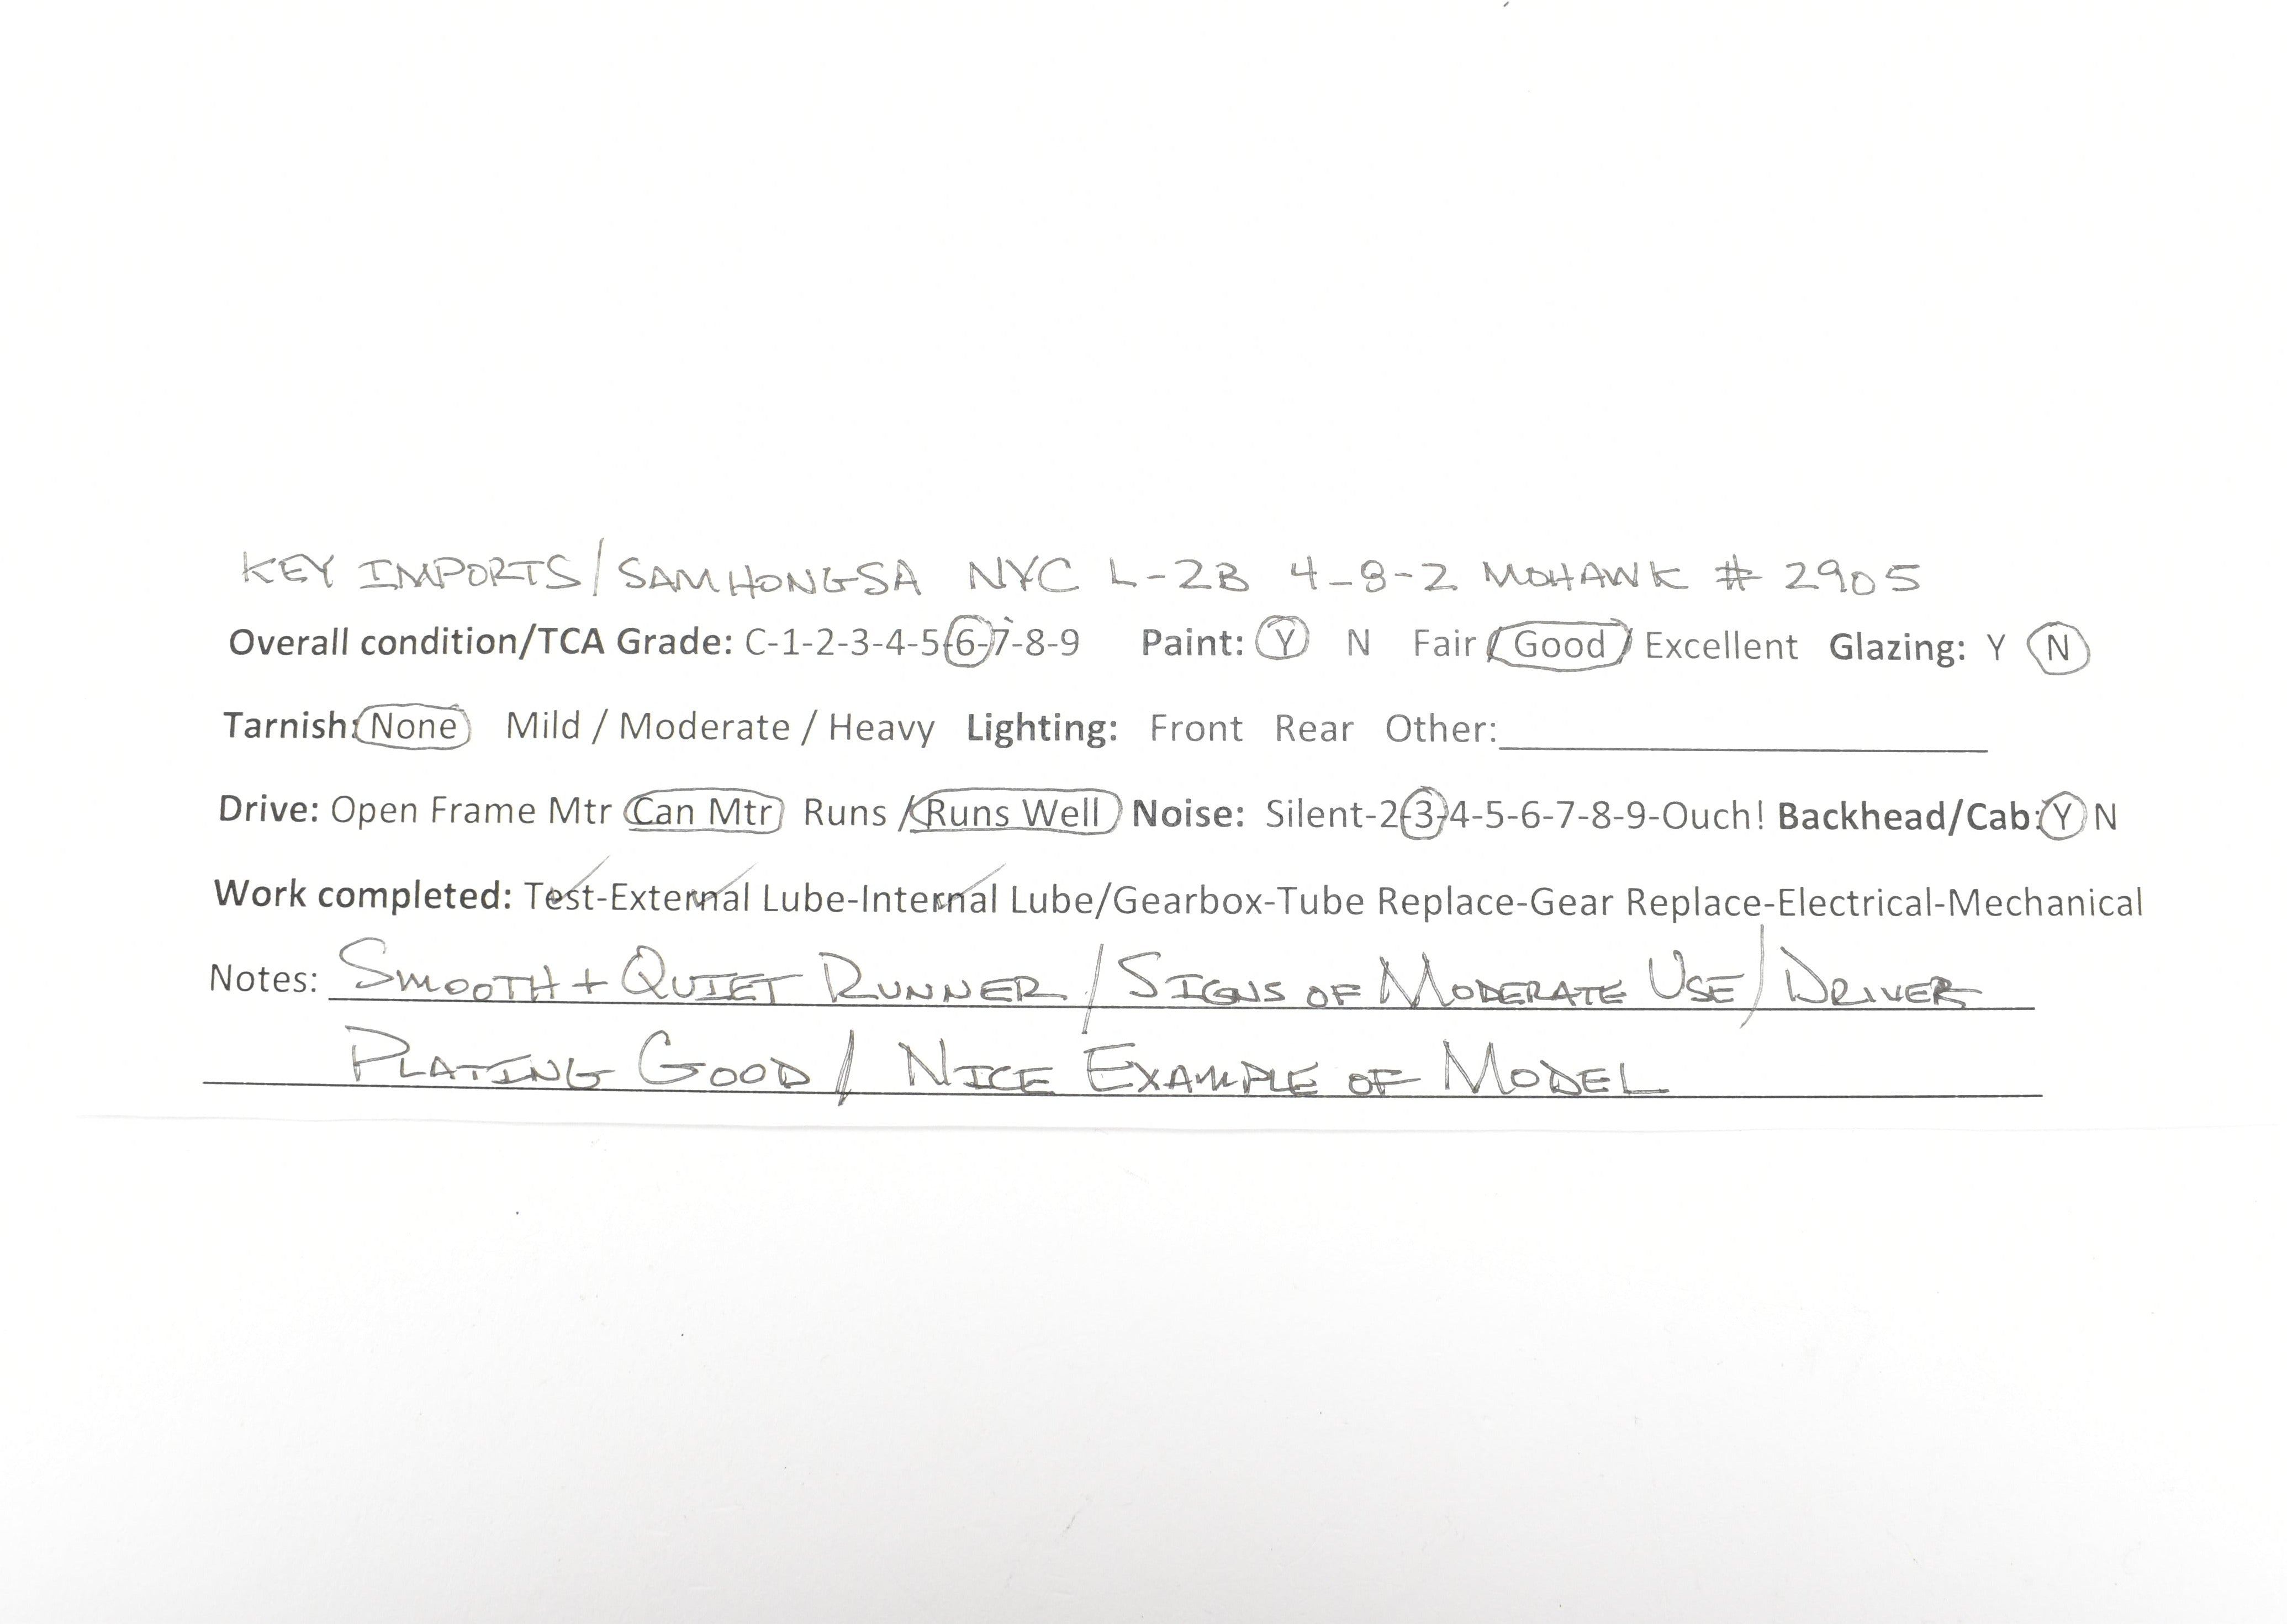 KEY IMPORTS/SAMHONGSA NYC L-2B 4-8-2 MOHAWK # 2905
Overall condition/TCA Grade: C-1-2-3-4-5-6-7-8-9 Paint: Y N Fair / Good / Excellent Glazing: Y N
Tarnish: None Mild / Moderate / Heavy Lighting: Front Rear Other:
Drive: Open Frame Mtr Can Mtr Runs / Runs Well Noise: Silent-2-3-4-5-6-7-8-9-Ouch! Backhead/Cab: Y N
Work completed: Test-External Lube-Internal Lube/Gearbox-Tube Replace-Gear Replace-Electrical-Mechanical
Notes: SMOOTH + QUIET RUNNER / SIGNS OF MODERATE USE / DRIVER
PLATING GOOD / NICE EXAMPLE OF MODEL